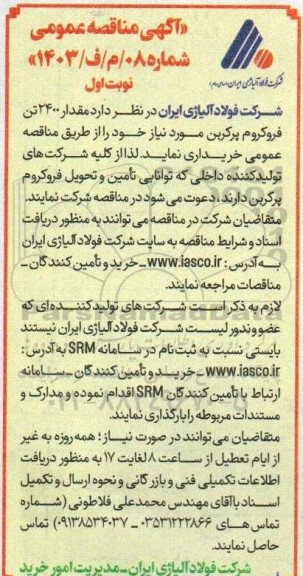 «آگهی مناقصه عمومی
شماره ۰۸/م/ف/۱۴۰۳»
نوبت اول
شرکت فولاد آلیاژی ایران (سهامی عام)
شرکت فولاد آلیاژی ایران در نظر دارد مقدار ۲۴۰۰ تن
فروکروم پرکربن مورد نیاز خود را از طریق مناقصه
عمومی خریداری نماید. لذا از کلیه شرکت های
تولیدکننده داخلی که توانایی تأمین و تحویل فروکروم
پرکربن دارند، دعوت می شود در مناقصه شرکت نمایند.
متقاضیان شرکت در مناقصه می توانند به منظور دریافت
اسناد و شرایط مناقصه به سایت شرکت فولاد آلیاژی ایران
به آدرس: www.iasco.ir ـ خرید و تأمین کنندگان ـ
مناقصات مراجعه نمایند.
لازم به ذکر است شرکت های تولیدکننده ای که
عضو وندور لیست شرکت فولاد آلیاژی ایران نیستند
بایستی نسبت به ثبت نام در سامانه SRM به آدرس:
www.iasco.ir ـ خرید و تأمین کنندگان ـ سامانه
ارتباط با تأمین کنندگان SRM اقدام نموده و مدارک و
مستندات مربوطه را بارگذاری نمایند.
متقاضیان می توانند در صورت نیاز؛ همه روزه به غیر
از ایام تعطیل از ساعت ۸ لغایت ۱۷ به منظور دریافت
اطلاعات تکمیلی فنی و بازرگانی و نحوه ارسال و تکمیل
اسناد با آقای مهندس محمدعلی فلاطونی (شماره
تماس های ۰۳۵۳۱۲۲۲۸۶۶ ـ ۰۹۱۳۸۵۳۴۰۳۷) تماس
حاصل نمایند.
شرکت فولاد آلیاژی ایران ـ مدیریت امور خرید